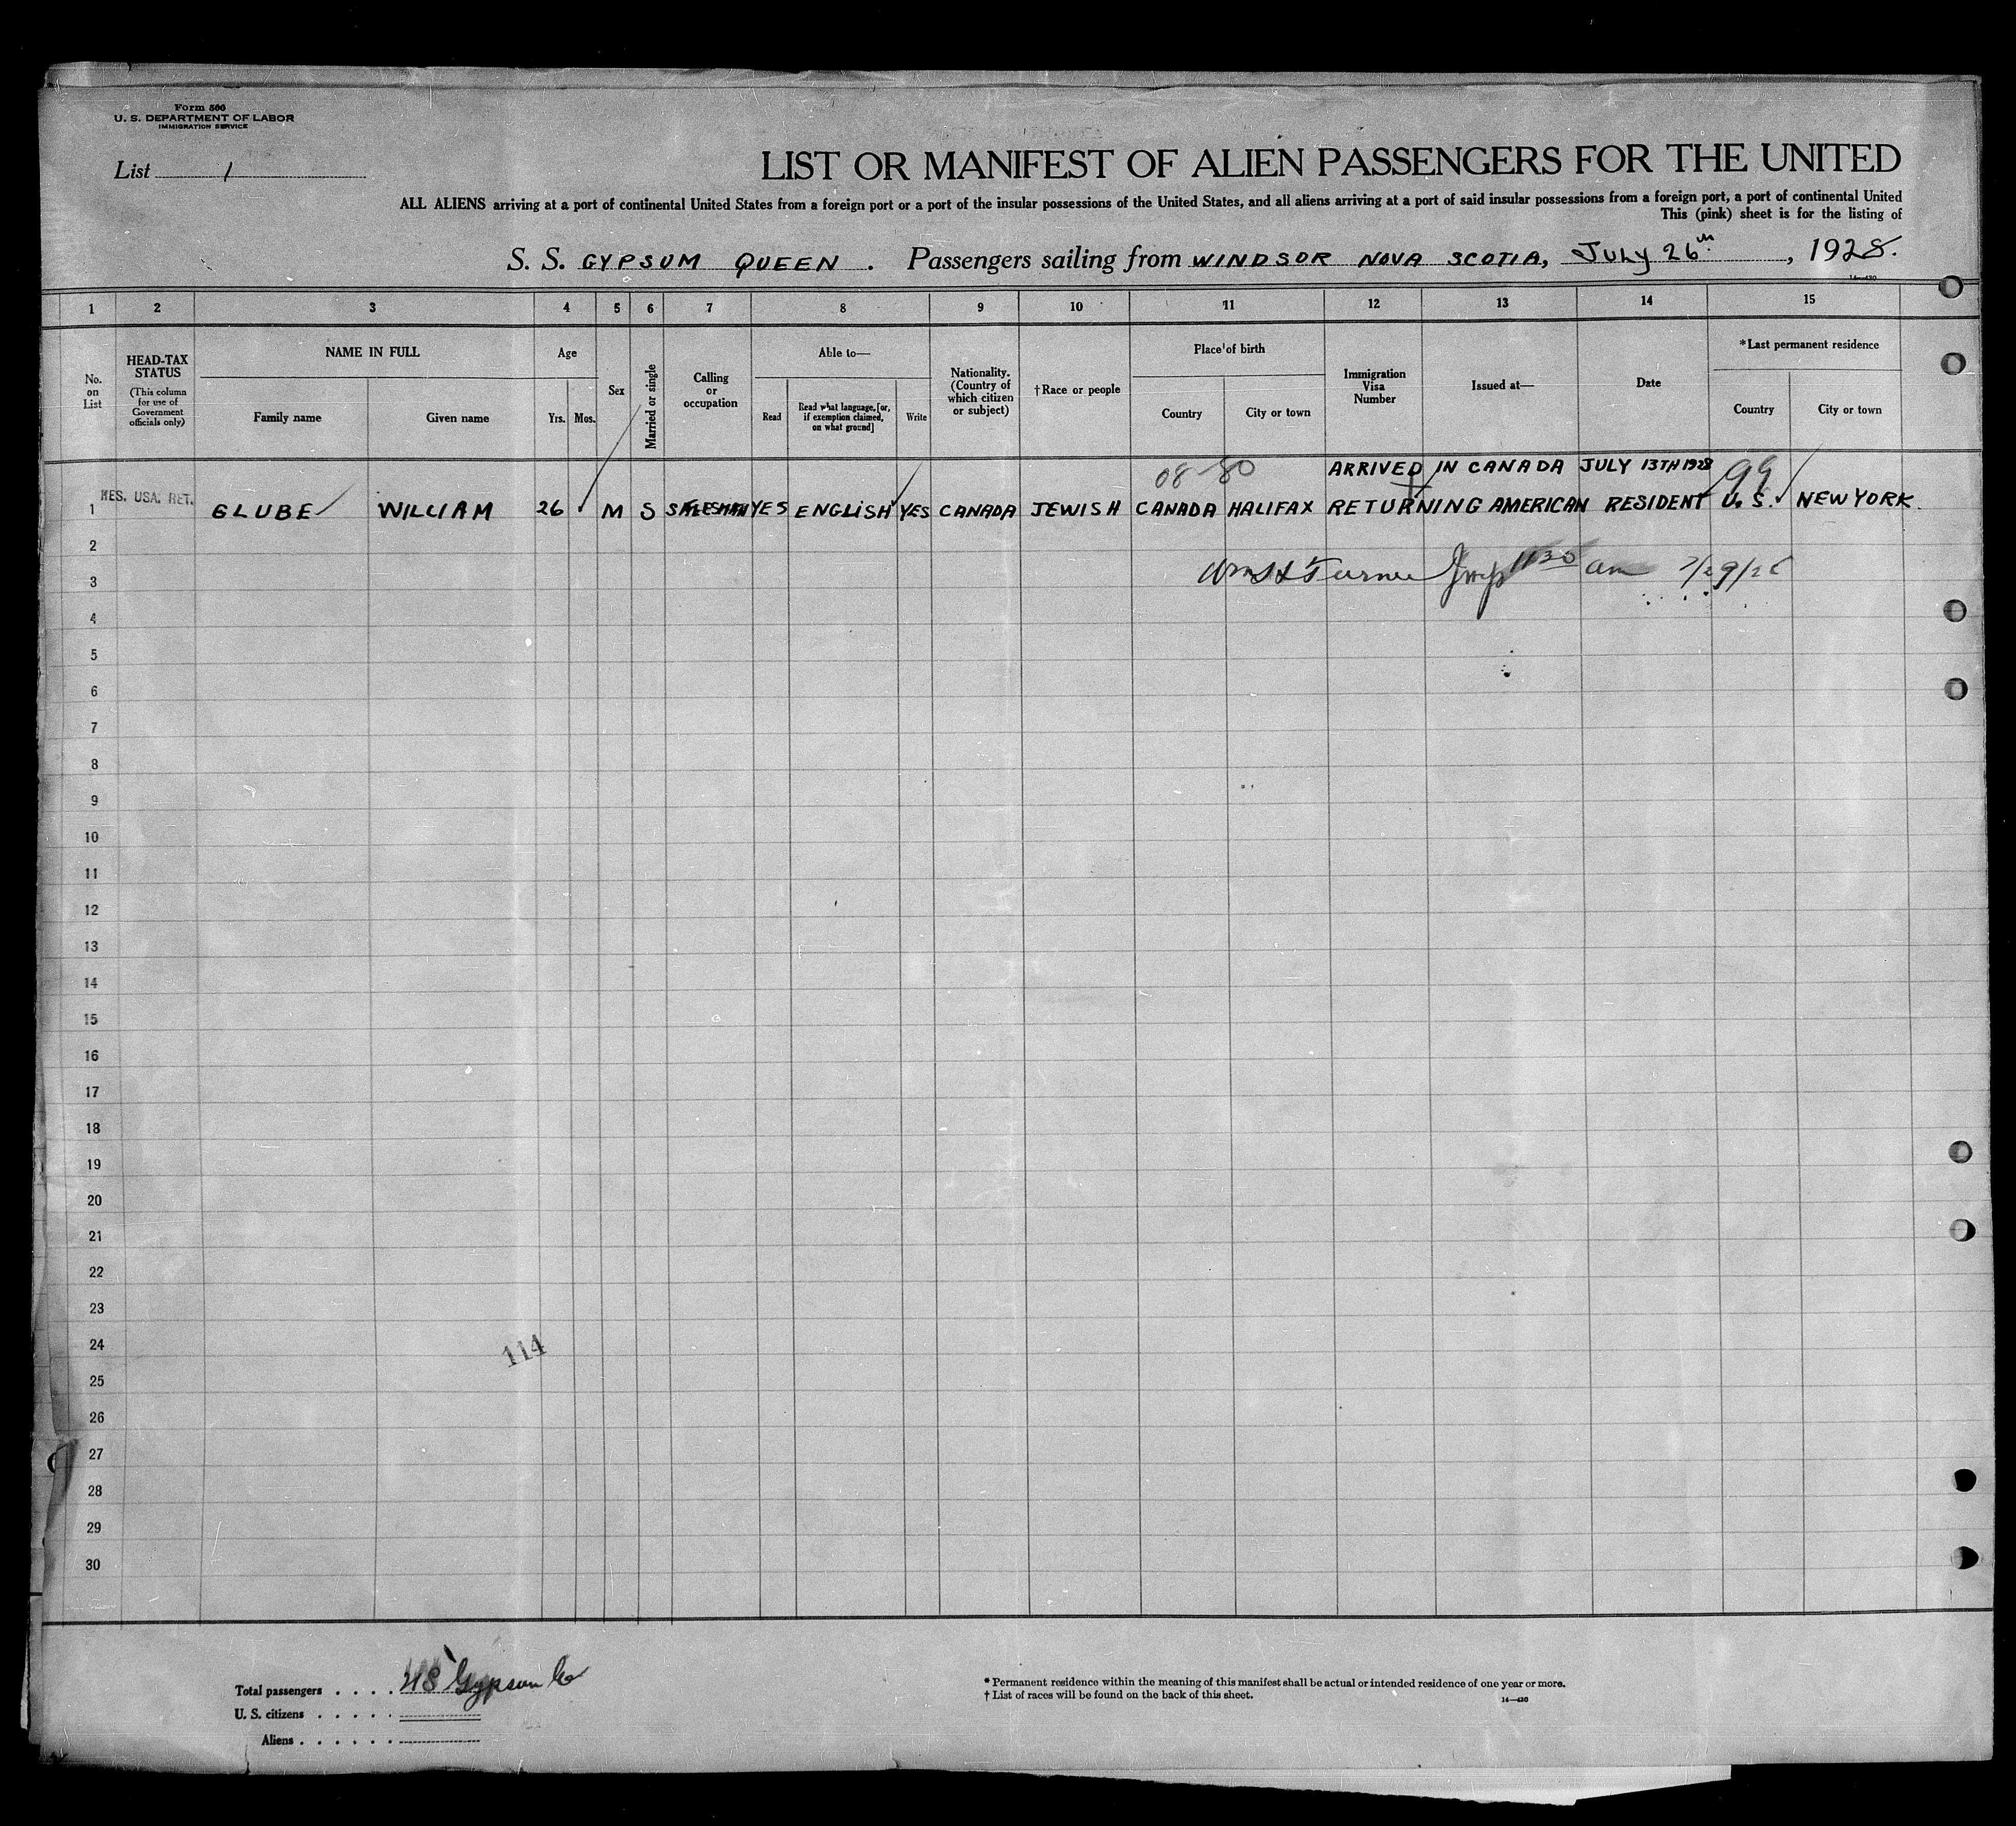 Form 500
U. S. DEPARTMENT OF LABOR
IMMIGRATION SERVICE
List 1
LIST OR MANIFEST OF ALIEN PASSENGERS FOR THE UNITED
ALL ALIENS arriving at a port of continental United States from a foreign port or a port of the insular possessions of the United States, and all aliens arriving at a port of said insular possessions from a foreign port, a port of continental United
This (pink) sheet is for the listing of
S. S. GYPSUM QUEEN . Passengers sailing from WINDSOR NOVA SCOTIA, JULY 26th , 1928.
1 2 3 4 5 6 7 8 9 10 11 12 13 14 15
No. on List
HEAD-TAX STATUS
(This column for use of Government officials only)
NAME IN FULL
Family name
Given name
Age
Yrs. Mos.
Sex
Married or single
Calling or occupation
Able to—
Read
Read what language, [or, if exemption claimed, on what ground]
Write
Nationality. (Country of which citizen or subject)
†Race or people
Place of birth
Country
City or town
Immigration Visa Number
Issued at—
Date
*Last permanent residence
Country
City or town
08-80 ARRIVED IN CANADA JULY 13TH 1928 99
1 RES. USA. RET. GLUBE WILLIAM 26 M S SALESMAN YES ENGLISH YES CANADA JEWISH CANADA HALIFAX RETURNING AMERICAN RESIDENT U. S. NEW YORK.
2
3 Turner Insp 11 30 am
4
5
6
7
8
9
10
11
12
13
14
15
16
17
18
19
20
21
22
23
24
114
25
26
27
28
29
30
Total passengers . . . . US Gypsum Co
U. S. citizens . . . . .
Aliens . . . . . .
* Permanent residence within the meaning of this manifest shall be actual or intended residence of one year or more.
† List of races will be found on the back of this sheet.
14—430